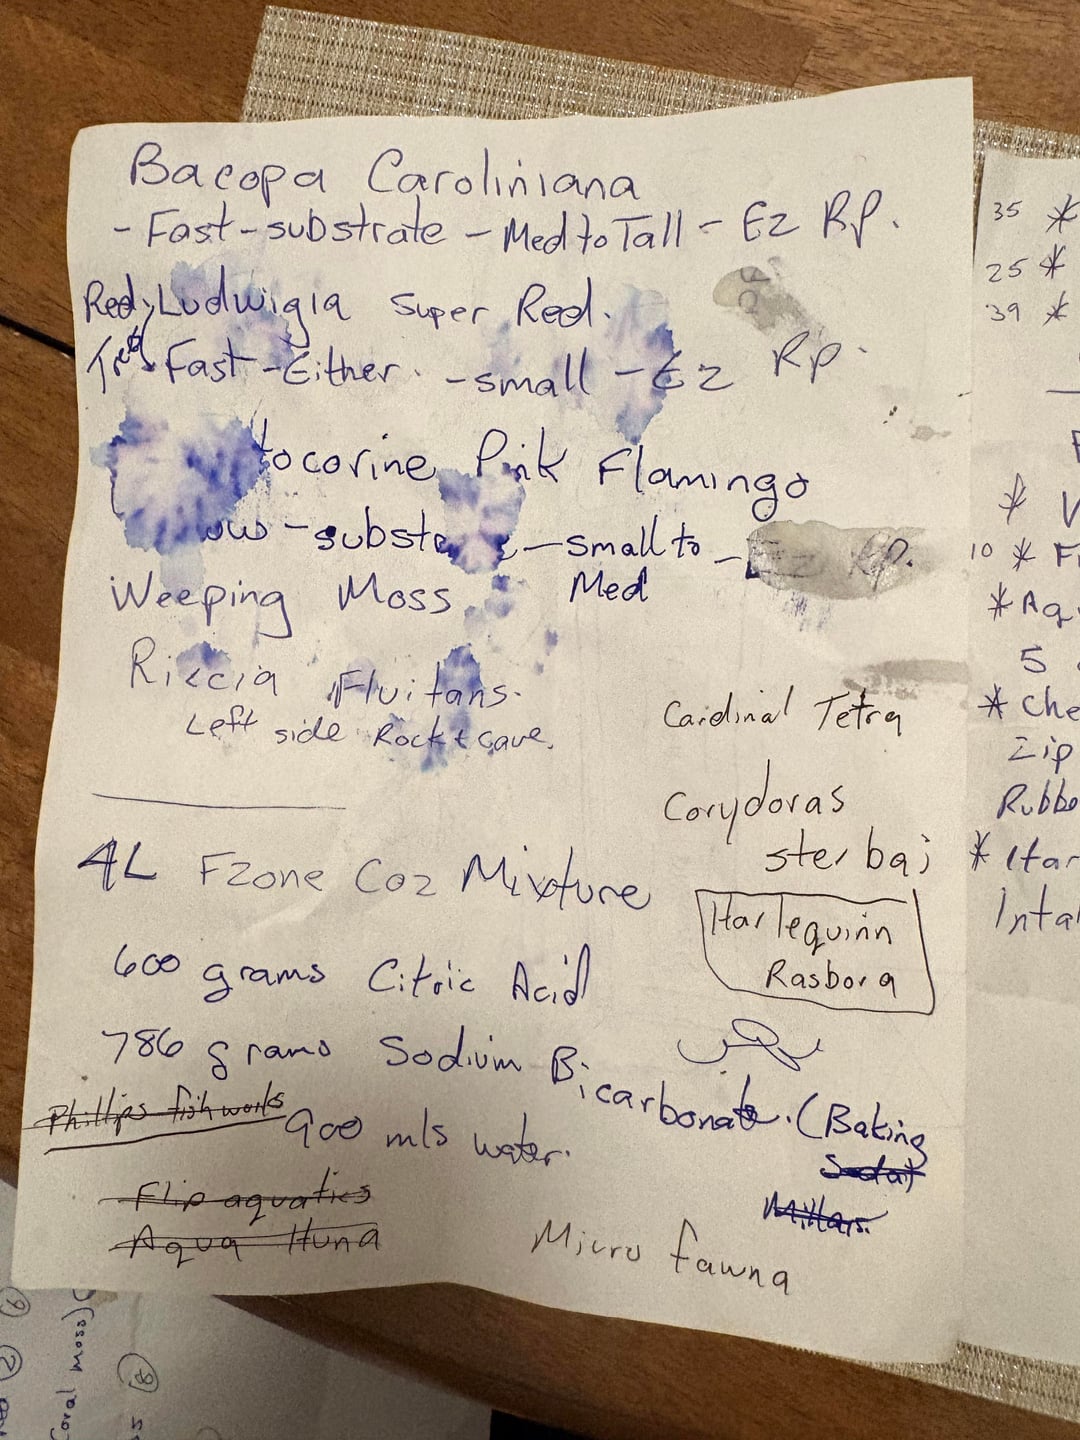 Bacopa Caroliniana
- Fast - substrate - Med to Tall - Ez Rp.
Red, Ludwigia Super Red.
Fast - Either - small - Ez Rp
tocorine Pink Flamingo
- small to Med - Ez Rp.
Weeping Moss
Riccia Fluitans.
Left side Rock & cave.
4L Fzone Co2 Mixture
600 grams Citric Acid
786 grams Sodium Bicarbonate. (Baking
Soda)
900 mls water.
Phillips fishworks
Flip aquatics
Aqua Huna
Cardinal Tetra
Corydoras
sterbai
Harlequinn
Rasbora
Micro fawna
35 *
25 *
39 *
*
10 * F
* Aq
5
* Che
Zip
Rubbe
* Har
Intal
Coral moss)